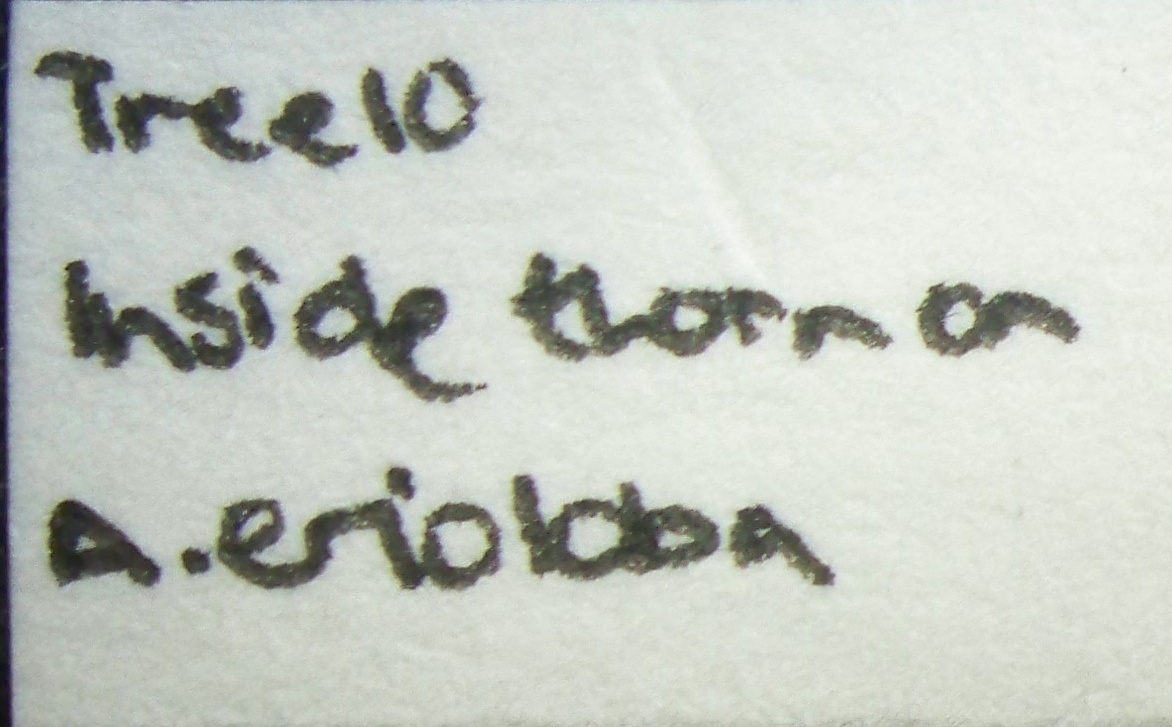 Tree 10
Inside thorn on
A. erioloba